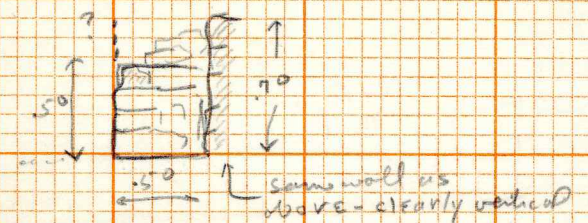 ?
.50
.70
.50
same wall as
above - clearly vertical